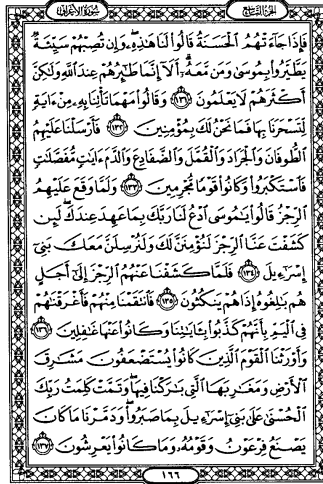 الجزء التاسع
سورة الأعراف
فَإِذَا جَآءَتۡهُمُ ٱلۡحَسَنَةُ قَالُوا۟ لَنَا هَـٰذِهِۦۖ وَإِن تُصِبۡهُمۡ سَيِّئَةٌ
يَطَّيَّرُوا۟ بِمُوسَىٰ وَمَن مَّعَهُۥٓۗ أَلَآ إِنَّمَا طَـٰٓئِرُهُمۡ عِندَ ٱللَّهِ وَلَـٰكِنَّ
أَكۡثَرَهُمۡ لَا يَعۡلَمُونَ ﴿١٣١﴾ وَقَالُوا۟ مَهۡمَا تَأۡتِنَا بِهِۦ مِنۡ ءَايَةٍ
لِّتَسۡحَرَنَا بِهَا فَمَا نَحۡنُ لَكَ بِمُؤۡمِنِينَ ﴿١٣٢﴾ فَأَرۡسَلۡنَا عَلَيۡهِمُ
ٱلطُّوفَانَ وَٱلۡجَرَادَ وَٱلۡقُمَّلَ وَٱلضَّفَادِعَ وَٱلدَّمَ ءَايَـٰتٍ مُّفَصَّلَـٰتٍ
فَٱسۡتَكۡبَرُوا۟ وَكَانُوا۟ قَوۡمًا مُّجۡرِمِينَ ﴿١٣٣﴾ وَلَمَّا وَقَعَ عَلَيۡهِمُ
ٱلرِّجۡزُ قَالُوا۟ يَـٰمُوسَى ٱدۡعُ لَنَا رَبَّكَ بِمَا عَهِدَ عِندَكَۖ لَئِن
كَشَفۡتَ عَنَّا ٱلرِّجۡزَ لَنُؤۡمِنَنَّ لَكَ وَلَنُرۡسِلَنَّ مَعَكَ بَنِىٓ
إِسۡرَٰٓءِيلَ ﴿١٣٤﴾ فَلَمَّا كَشَفۡنَا عَنۡهُمُ ٱلرِّجۡزَ إِلَىٰٓ أَجَلٍ
هُم بَـٰلِغُوهُ إِذَا هُمۡ يَنكُثُونَ ﴿١٣٥﴾ فَٱنتَقَمۡنَا مِنۡهُمۡ فَأَغۡرَقۡنَـٰهُمۡ
فِى ٱلۡيَمِّ بِأَنَّهُمۡ كَذَّبُوا۟ بِـَٔايَـٰتِنَا وَكَانُوا۟ عَنۡهَا غَـٰفِلِينَ ﴿١٣٦﴾
وَأَوۡرَثۡنَا ٱلۡقَوۡمَ ٱلَّذِينَ كَانُوا۟ يُسۡتَضۡعَفُونَ مَشَـٰرِقَ
ٱلۡأَرۡضِ وَمَغَـٰرِبَهَا ٱلَّتِى بَـٰرَكۡنَا فِيهَاۖ وَتَمَّتۡ كَلِمَتُ رَبِّكَ
ٱلۡحُسۡنَىٰ عَلَىٰ بَنِىٓ إِسۡرَٰٓءِيلَ بِمَا صَبَرُوا۟ۖ وَدَمَّرۡنَا مَا كَانَ
يَصۡنَعُ فِرۡعَوۡنُ وَقَوۡمُهُۥ وَمَا كَانُوا۟ يَعۡرِشُونَ ﴿١٣٧﴾
١٦٦